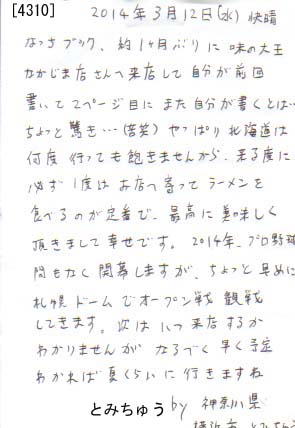 [4310]
2014年3月12日(水) 快晴
なっさブック、約1ヶ月ぶりに味の大王
なかじま店さんへ来店して自分が前回
書いて2ページ目にまた自分が書くとは…
ちょっと驚き…(苦笑) やっぱり北海道は
何度行っても飽きませんから、来る度に
必ず1度はお店へ寄ってラーメンを
食べるのが定番で、最高に美味しく
頂きまして幸せです。2014年、プロ野球
間もなく開幕しますが、ちょっと早めに
札幌ドームでオープン戦観戦
してきます。次はいつ来店するか
わかりませんがなるべく早く予定
わかれば夏くらいに行きますね
とみちゅう by 神奈川県
横浜市 とみちゅう